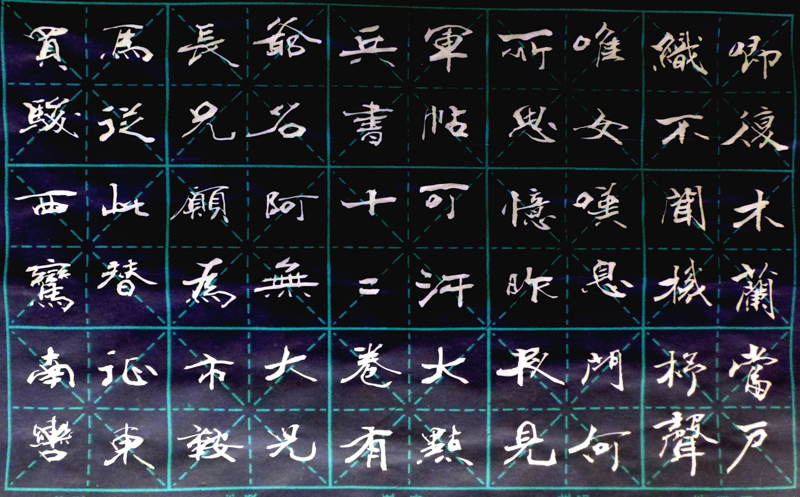 唧復木蘭當戶
織不聞機杼聲
唯女嘆息問何
所思憶昨夜見
軍帖可汗大點
兵書十二卷有
爺名阿無大兒
長兄願為市鞍
馬從此替征東
買駿西韉南轡